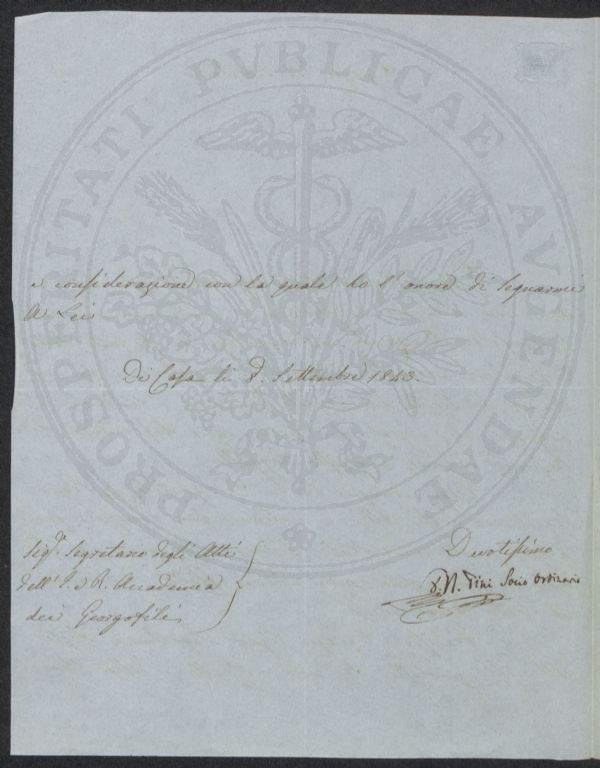 PROSPERITATI PVBLICAE AVGENDAE
e considerazione con la quale ho l'onore di segnarmi
A Lei
Di Casa li 8. Settembre 1843.
Sigr. Segretario degli Atti
dell'I. e R. Accademia
dei Georgofili
Devotissimo
D. N. Tini Socio Ordinario